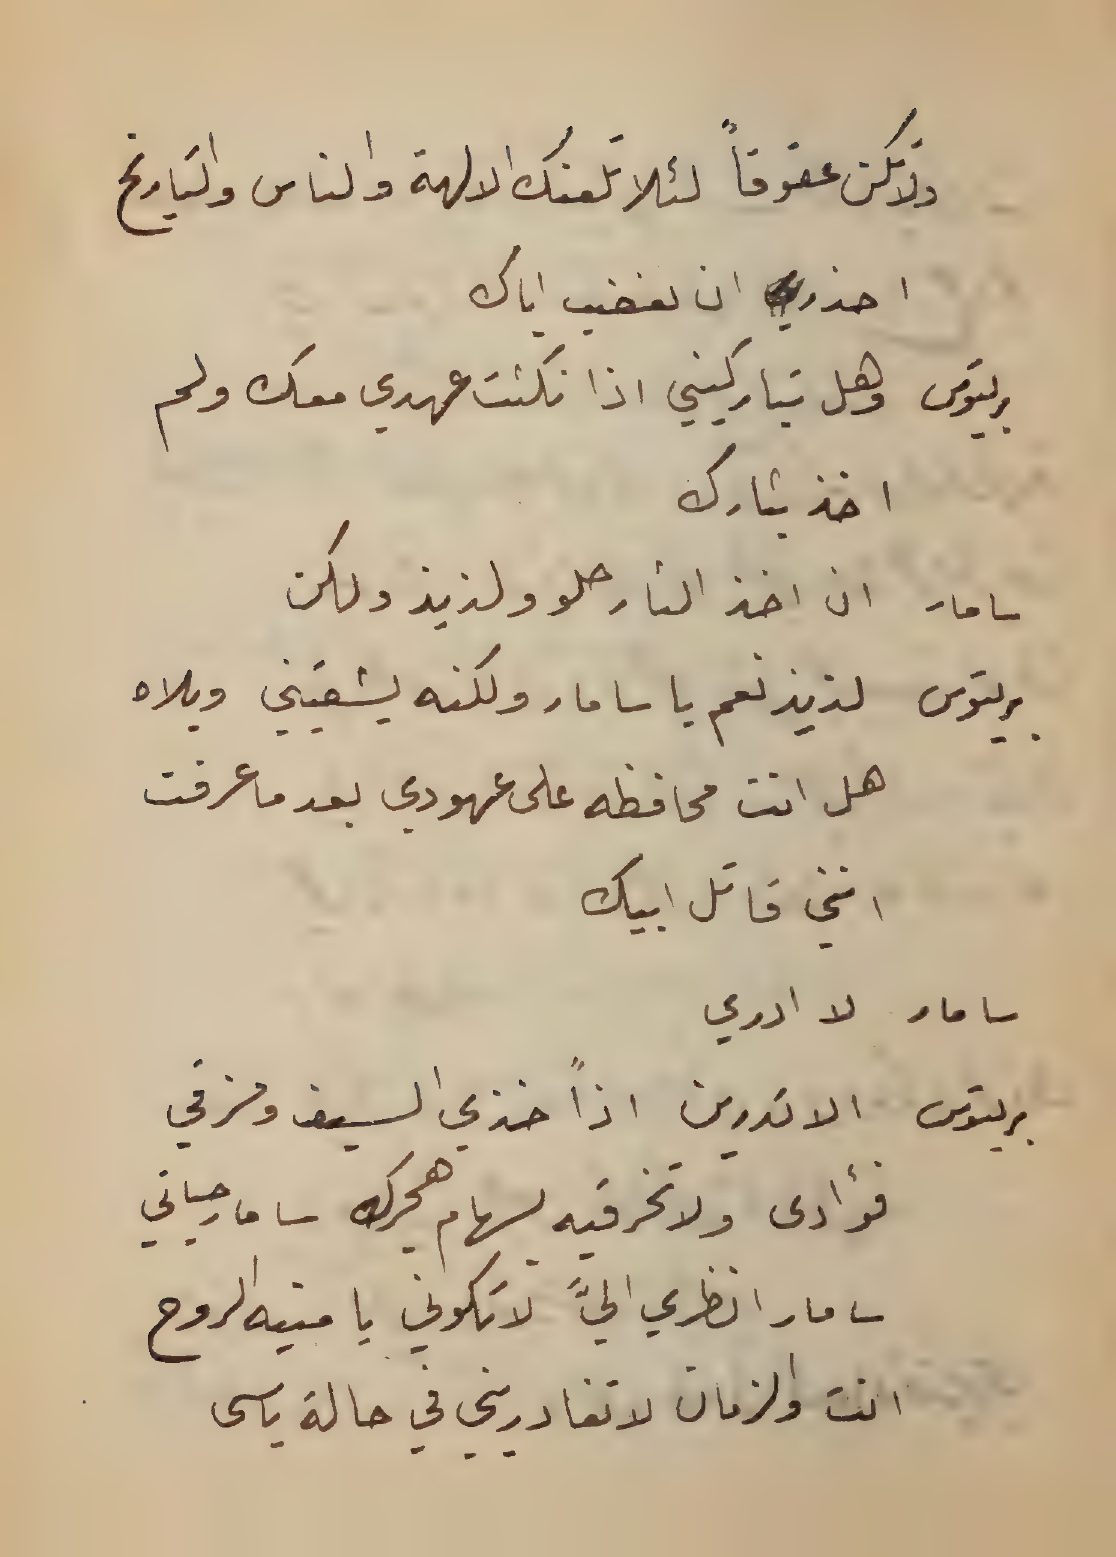 ولا تكن عقوقاً لئلا تلعنك الالهة والناس والتاريخ
احذر ان تغضب اباك
بريتوس وهل تباركيني اذا نكثت عهدي معك ولم
اخذ بثارك
سامار ان اخذ الثار حلو ولذيذ ولكن
بريتوس لذيذ نعم يا سامار ولكنه يشقيني ويلاه
هل انت محافظه على عهودي بعد ما عرفت
انني قاتل ابيك
سامار لا ادري
بريتوس الا تدرين اذاً خذي السيف ومزقي
فؤادى ولا تخرقيه بسهام هجرك سامار حياتي
سامار انظري اليَّ لا تكوني يا منيه الروح
انت والزمان لا تغادريني في حالة ياسى